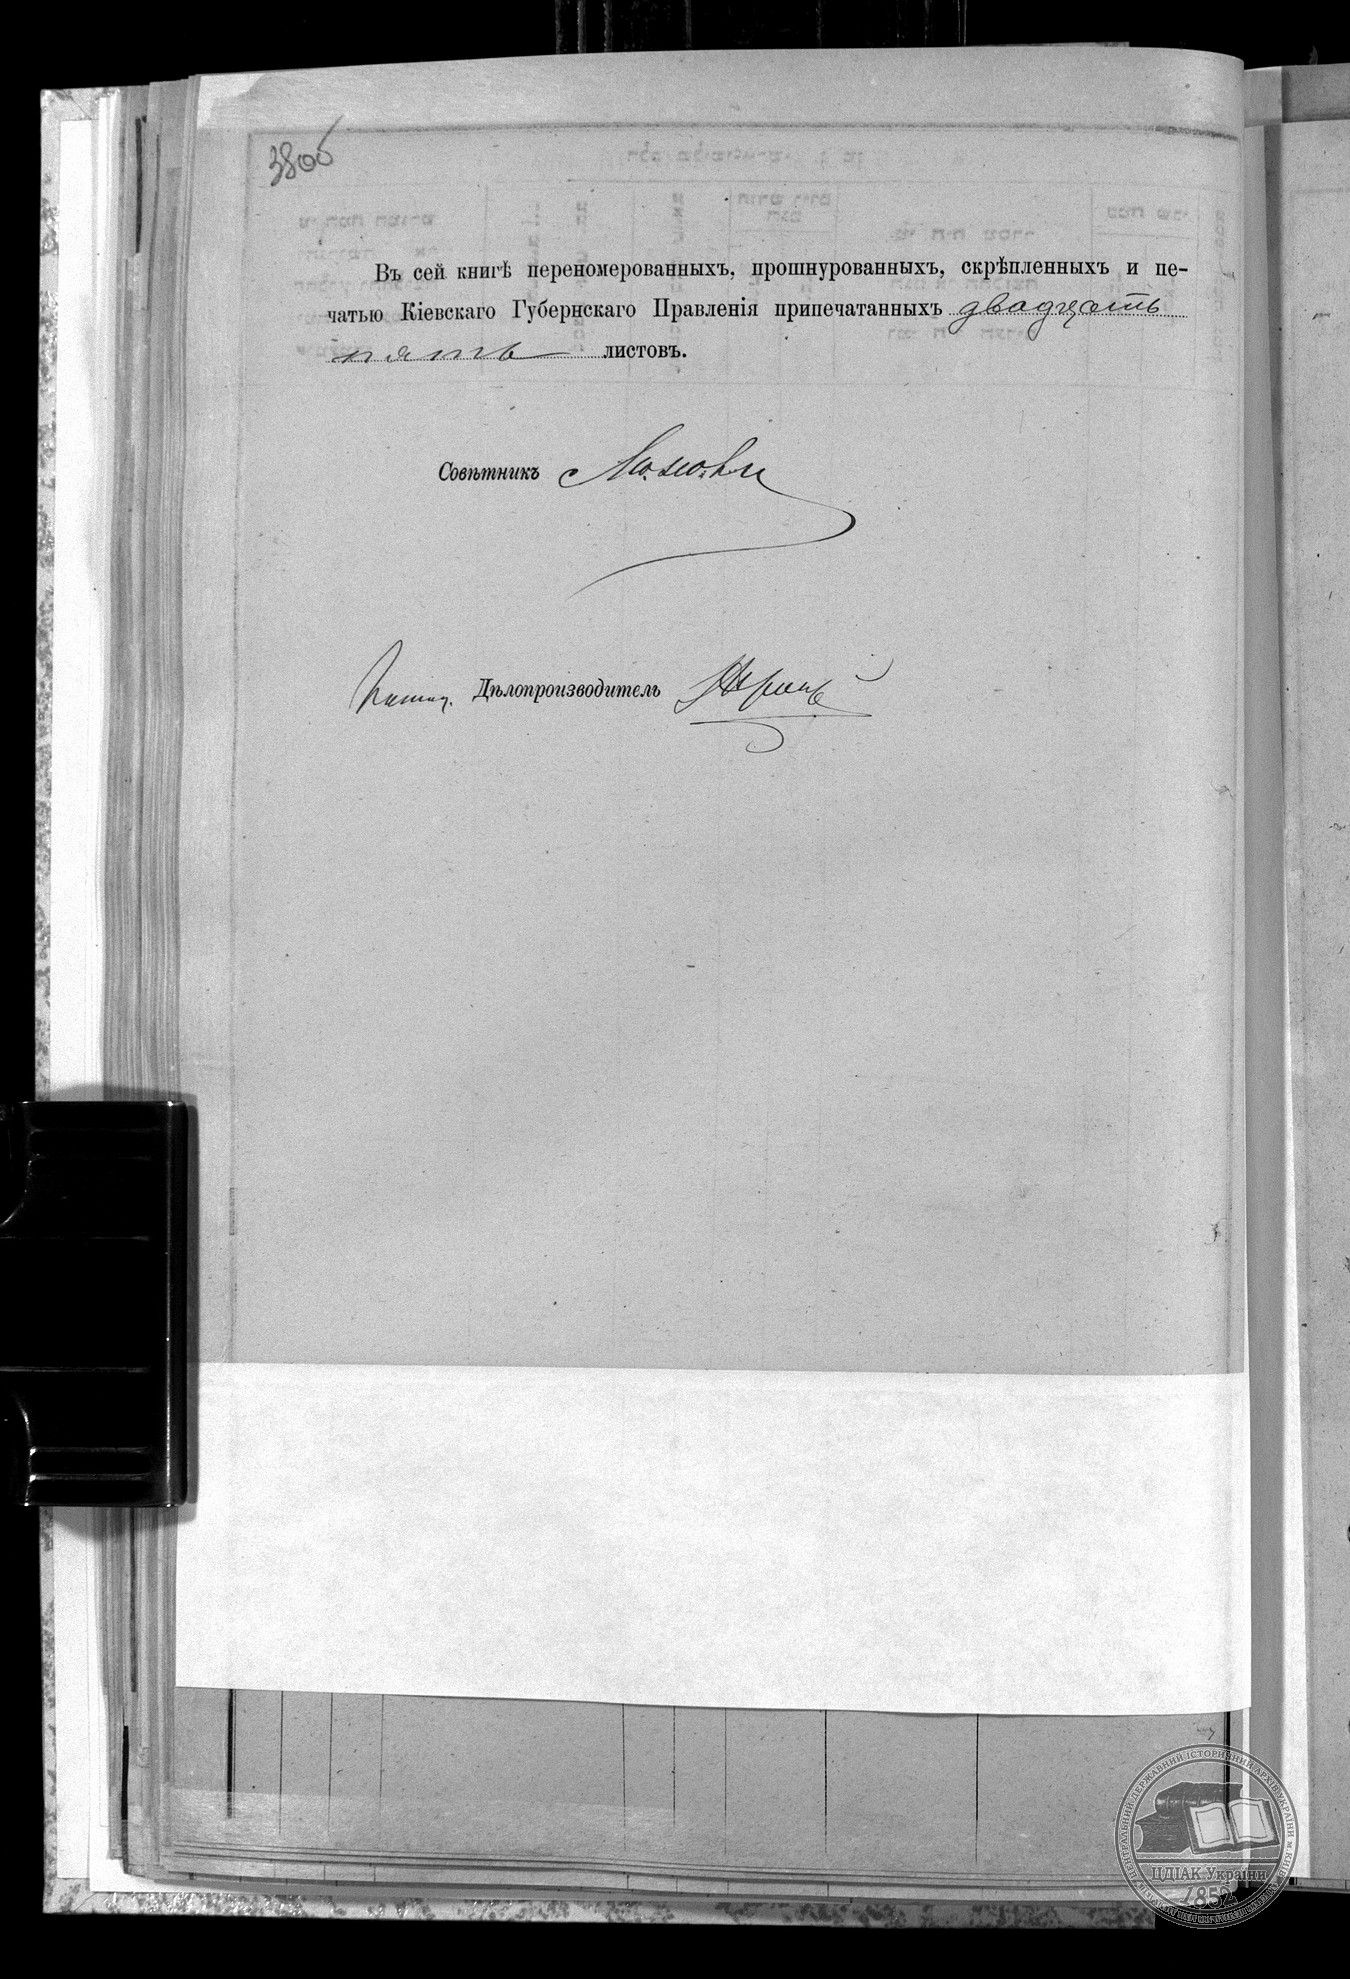 38об
Въ сей книгѣ переномерованныхъ, прошнурованныхъ, скрѣпленныхъ и пе-
чатью Кіевскаго Губернскаго Правленія припечатанныхъ двадцать
пять листовъ.
Совѣтникъ
Дѣлопроизводитель
ЦЕНТРАЛЬНИЙ ДЕРЖАВНИЙ ІСТОРИЧНИЙ АРХІВ УКРАЇНИ м. КИЇВ
ЦДІАК України
1852